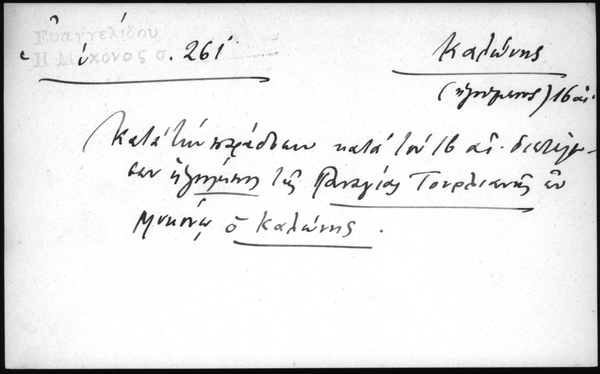 Εὐαγγελίδου
Ἡ Μύκονος σ. 261
Καλώνης
(ἡγούμενος) 16 αἰ.
Κατὰ τὴν παράδοσιν κατὰ τὸν 16 αἰ. διετέλε-
σεν ἡγούμενος τῆς Παναγίας Τουρλιανῆς ἐν
Μυκόνῳ ὁ Καλώνης.